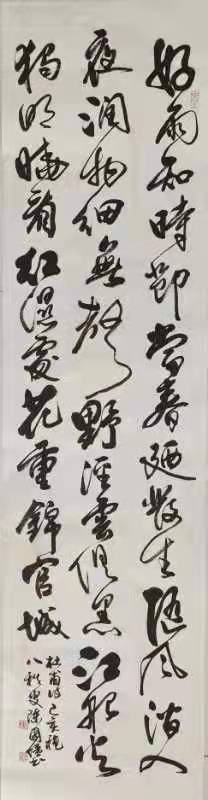 好雨知時節當春廼發生隨風潛入
夜潤物細無聲野徑雲俱黑江船火
獨明曉看紅濕處花重錦官城
杜甫诗己亥
八秩叟陳國书